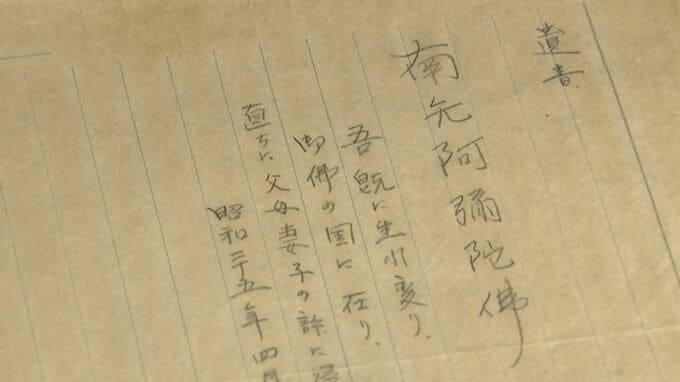 遺書
南无阿彌陀佛
吾既に生れ変り、
御佛の国に在り、
直ちに父母妻子の許に
昭和二十五年四月